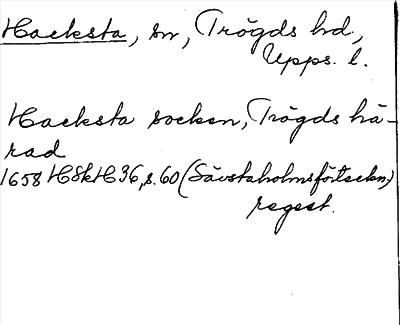 Hacksta, sn, Trögds hd,
Upps. l.
Hacksta socken, Trögds hä-
rad
1658 HSkH 36, s. 60 (Sävstaholmsförteckn.)
regest.